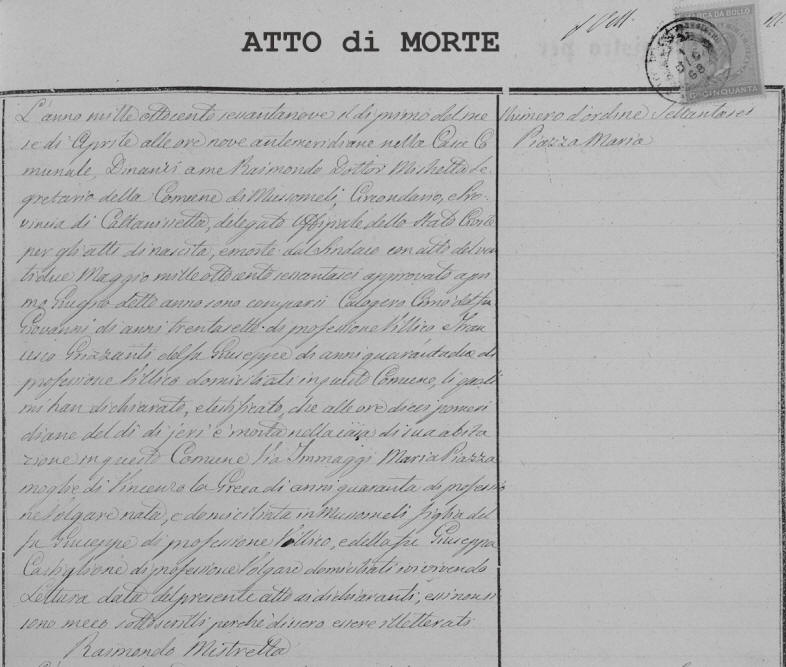 ATTO di MORTE
MARCA DA BOLLO
C. CINQUANTA
DIC
68
L'anno mille ottocento sessantanove il dì primo del me
se di Aprile alle ore nove antemeridiane nella Casa Co
munale, Dinanzi a me Raimondo Dottor Mistretta Se
gretario della Comune di Mussomeli, Circondario, e Pro-
vincia di Caltanissetta, delegato Uffiziale dello Stato Civile
per gli atti di nascita, e morte dal Sindaco con atto del ven
tidue Maggio mille ottocento sessantasei approvato a pri
mo Giugno detto anno sono comparsi Calogero Cimò del fu
Giovanni di anni trentasette di professione Villico e Fran
cesco Grizzanti del fu Giuseppe di anni quarantadue di
professione Villico domiciliati in questo Comune, li quali
mi han dichiarato, e testificato, che alle ore dieci pomeri
diane del dì di jeri è morta nella casa di sua abita
zione in questo Comune Via Immaggi Maria Piazza
moglie di Vincenzo la Greca di anni quaranta di professio
ne Volgare nata, e domiciliata in Mussomeli figlia del
fu Giuseppe di professione Villico, e della fu Giuseppa
Castiglione di professione Volgare domiciliati ivi vivendo
Lettura data del presente atto ai dichiaranti, essi non si
sono meco sottoscritti perchè dissero essere illetterati
Raimondo Mistretta
Numero d'ordine Settantasei
Piazza Maria